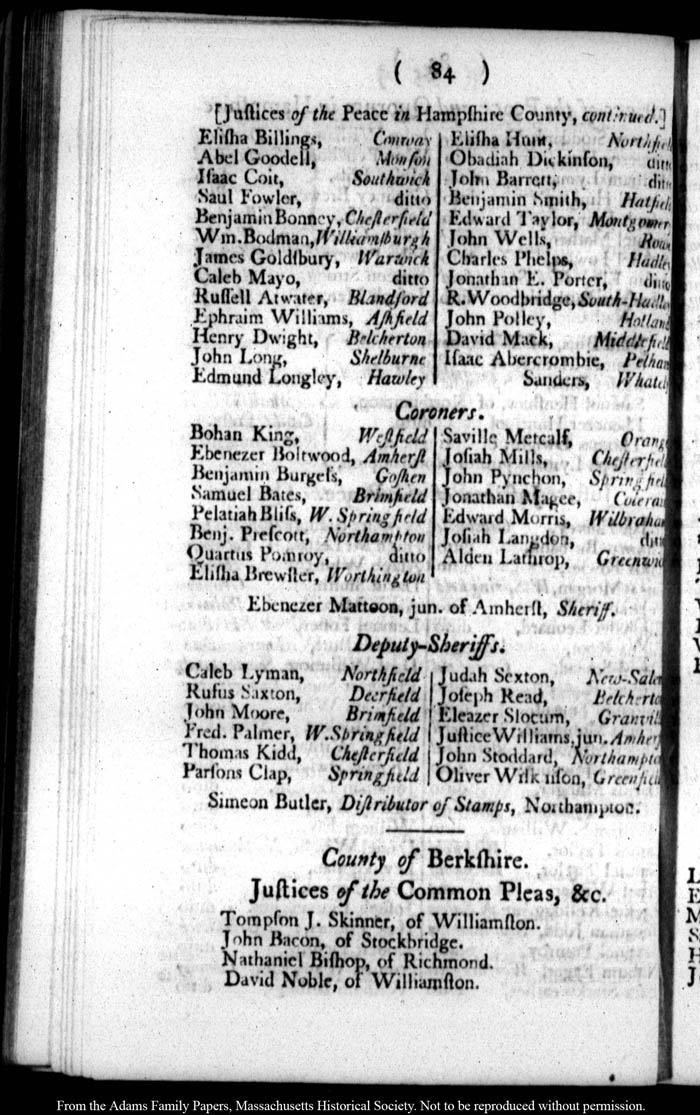 ( 84 )
[Juſtices of the Peace in Hampſhire County, continued.]
Eliſha Billings, Conway
Abel Goodell, Monſon
Iſaac Coit, Southwick
Saul Fowler, ditto
Benjamin Bonney, Cheſterfield
Wm. Bodman, Williamſburgh
James Goldſbury, Warwick
Caleb Mayo, ditto
Ruſſell Atwater, Blandford
Ephraim Williams, Aſhfield
Henry Dwight, Belcherton
John Long, Shelburne
Edmund Longley, Hawley
Eliſha Hunt, Northfiel
Obadiah Dickinſon, ditto
John Barrett, ditto
Benjamin Smith, Hatfiel
Edward Taylor, Montgomer
John Wells, Row
Charles Phelps, Hadle
Jonathan E. Porter, ditto
R. Woodbridge, South-Hadle
John Polley, Holland
David Mack, Middlefiel
Iſaac Abercrombie, Pelham
Sanders, Whatel
Coroners.
Bohan King, Weſtfield
Ebenezer Boltwood, Amherſt
Benjamin Burgeſs, Goſhen
Samuel Bates, Brimfield
Pelatiah Bliſs, W. Springfield
Benj. Preſcott, Northampton
Quartus Pomroy, ditto
Eliſha Brewſter, Worthington
Saville Metcalf, Orang
Joſiah Mills, Cheſterfiel
John Pynchon, Springfiel
Jonathan Magee, Colerai
Edward Morris, Wilbraham
Joſiah Langdon, ditt
Alden Lathrop, Greenwic
Ebenezer Mattoon, jun. of Amherſt, Sheriff.
Deputy-Sheriffs.
Caleb Lyman, Northfield
Rufus Saxton, Deerfield
John Moore, Brimfield
Fred. Palmer, W. Springfield
Thomas Kidd, Cheſterfield
Parſons Clap, Springfield
Judah Sexton, New-Sale
Joſeph Read, Belcherto
Eleazer Slocum, Granvill
Juſtice Williams, jun. Amherſ
John Stoddard, Northampto
Oliver Wilkinſon, Greenfiel
Simeon Butler, Diſtributor of Stamps, Northampton.
County of Berkſhire.
Juſtices of the Common Pleas, &c.
Tompſon J. Skinner, of Williamſton.
John Bacon, of Stockbridge.
Nathaniel Biſhop, of Richmond.
David Noble, of Williamſton.
From the Adams Family Papers, Massachusetts Historical Society. Not to be reproduced without permission.